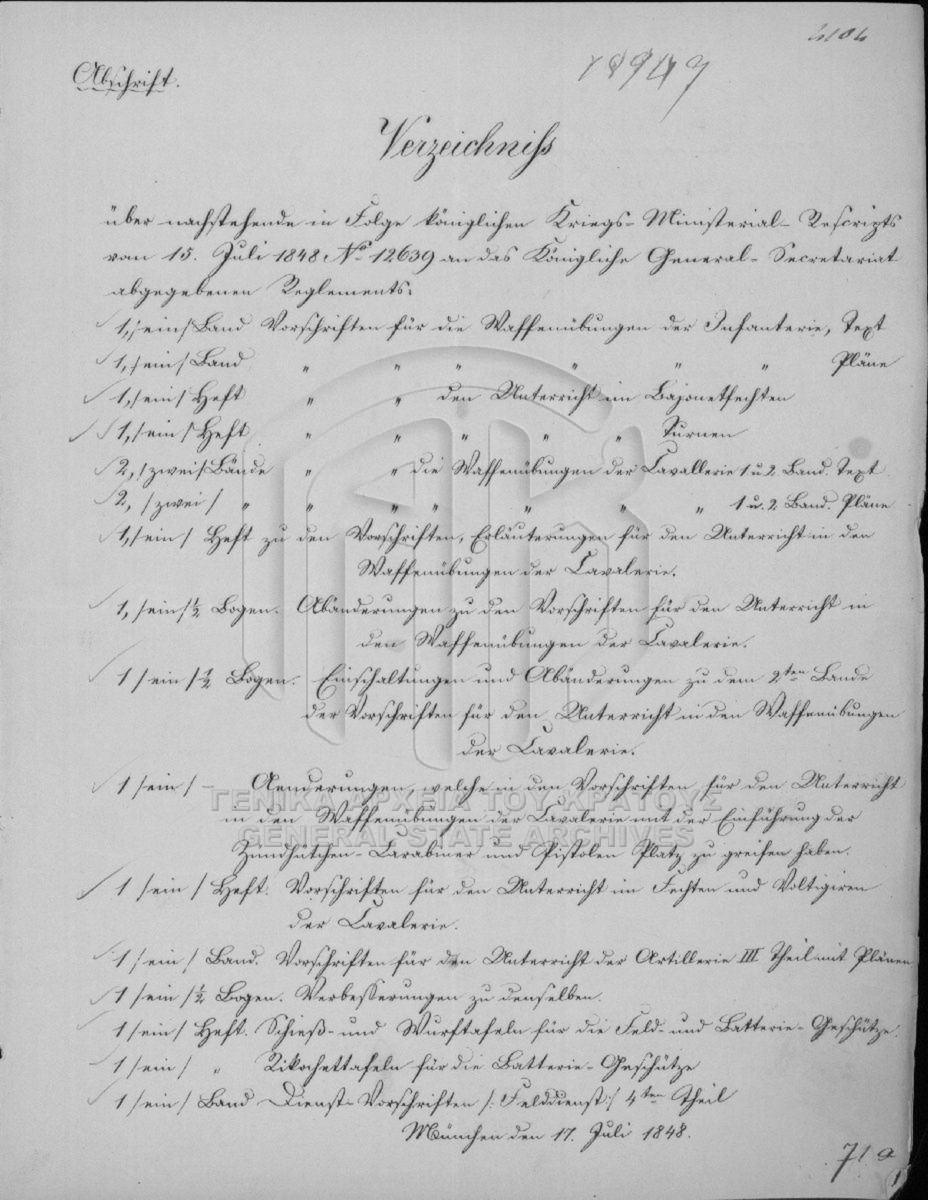 Abschrift.
Verzeichniss
über nachstehende in Folge königlichen Kriegs-Ministerial-Rescripts
vom 15. Juli 1848 No 12639 an das Königliche General-Secretariat
abgegebenen Reglements:
1, /ein/ Band Vorschriften für die Waffenübungen der Infanterie, Text
1, /ein/ Band " " " " " " Pläne
1, /ein/ Heft " " den Unterricht im Bajonetfechten
1, /ein/ Heft " " " " " Turnen
2, /zwei/ Bände " " die Waffenübungen der Cavallerie 1 u. 2. Band. Text
2, /zwei/ " " " " " " " 1 u. 2. Band. Pläne
1, /ein/ Heft zu den Vorschriften, Erläuterungen für den Unterricht in den
Waffenübungen der Cavalerie.
1, /ein/ ½ Bogen. Abänderungen zu den Vorschriften für den Unterricht in
den Waffenübungen der Cavalerie.
1 /ein/ ½ Bogen. Einschaltungen und Abänderungen zu dem 2ten Bande
der Vorschriften für den Unterricht in den Waffenübungen
der Cavalerie.
1 /ein/ - Aenderungen, welche in den Vorschriften für den Unterricht
in den Waffenübungen der Cavalerie mit der Einführung der
Zündhütchen-Carabiner und Pistolen Platz zu greifen haben.
ΓΕΝΙΚΑ ΑΡΧΕΙΑ ΤΟΥ ΚΡΑΤΟΥΣ
GENERAL STATE ARCHIVES
1 /ein/ Heft. Vorschriften für den Unterricht im Fechten und Voltigiren
der Cavalerie.
1 /ein/ Band. Vorschriften für den Unterricht der Artillerie III Theil mit Plänen
1 /ein/ ½ Bogen. Verbesserungen zu denselben.
1 /ein/ Heft. Schieß- und Wurftafeln für die Feld- und Batterie-Geschütze.
1 /ein/ " Rikochettafeln für die Batterie-Geschütze
1 /ein/ Band Dienst-Vorschriften /: Felddienst :/ 4ten Theil
München den 17. Juli 1848.